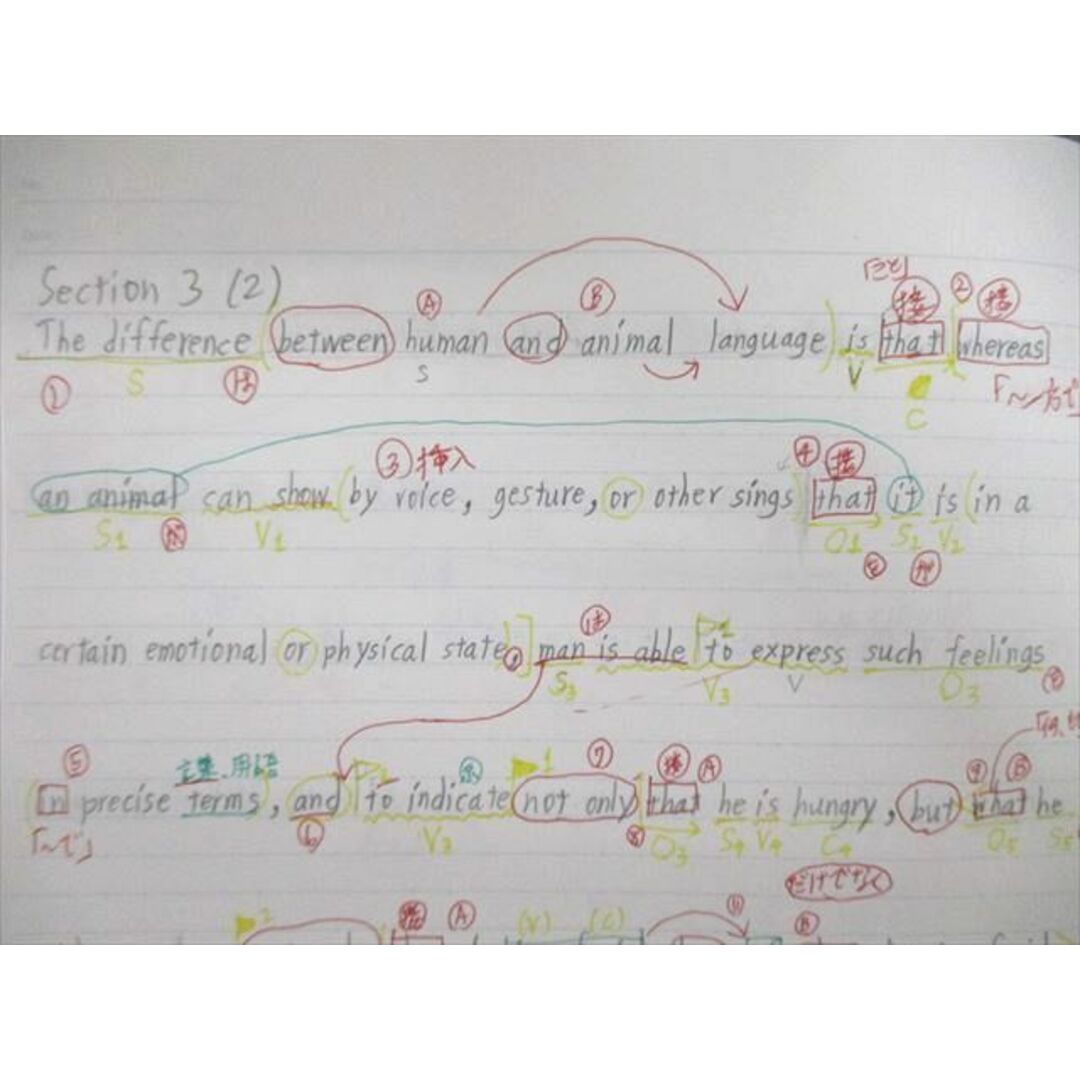 Section 3 (2)
「こと」
Ⓐ Ⓑ 接 ② 接
The difference between human and animal language is that whereas
① S は S V C 「~一方で」
③挿入 ④ 接
an animal can show by voice, gesture, or other sings that it is in a
S1 が V1 O1 S2 V2
は
certain emotional or physical state, man is able to express such feelings
S3 V3 V O3 を
⑤ 主題、用語 1 ⑦ 接 Ⓐ ⑨ Ⓑ
in precise terms, and to indicate not only that he is hungry, but what he
「~で」 ⑥ V3 ⑧ O3 S4 V4 C4 O5 S5
だけでなく
2 接 Ⓐ (V) (C) ⑪ Ⓑ